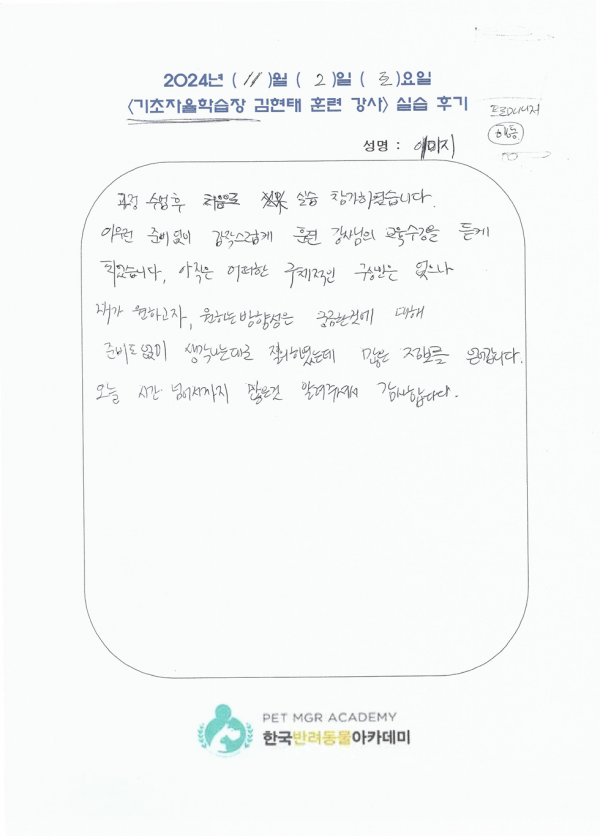 2024년 ( 11 )월 ( 2 )일 ( 토 )요일
<기초자율학습장 김현태 훈련 강사> 실습 후기
프로매니저
행동
성명 : 이미지
과정 수업후 처음으로 실습 참가하였습니다.
아무런 준비없이 갑작스럽게 훈련 강사님의 교육수강을 듣게
되었습니다, 아직은 어떠한 구체적인 구상반은 없으나
내가 원하고자, 원하는방향성은 궁금한것에 대해
준비도없이 생각나는대로 질의하였는데 많은 정보를 얻어갑니다.
오늘 시간 넘어서까지 많은것 알려주셔서 감사합니다.
PET MGR ACADEMY
한국반려동물아카데미